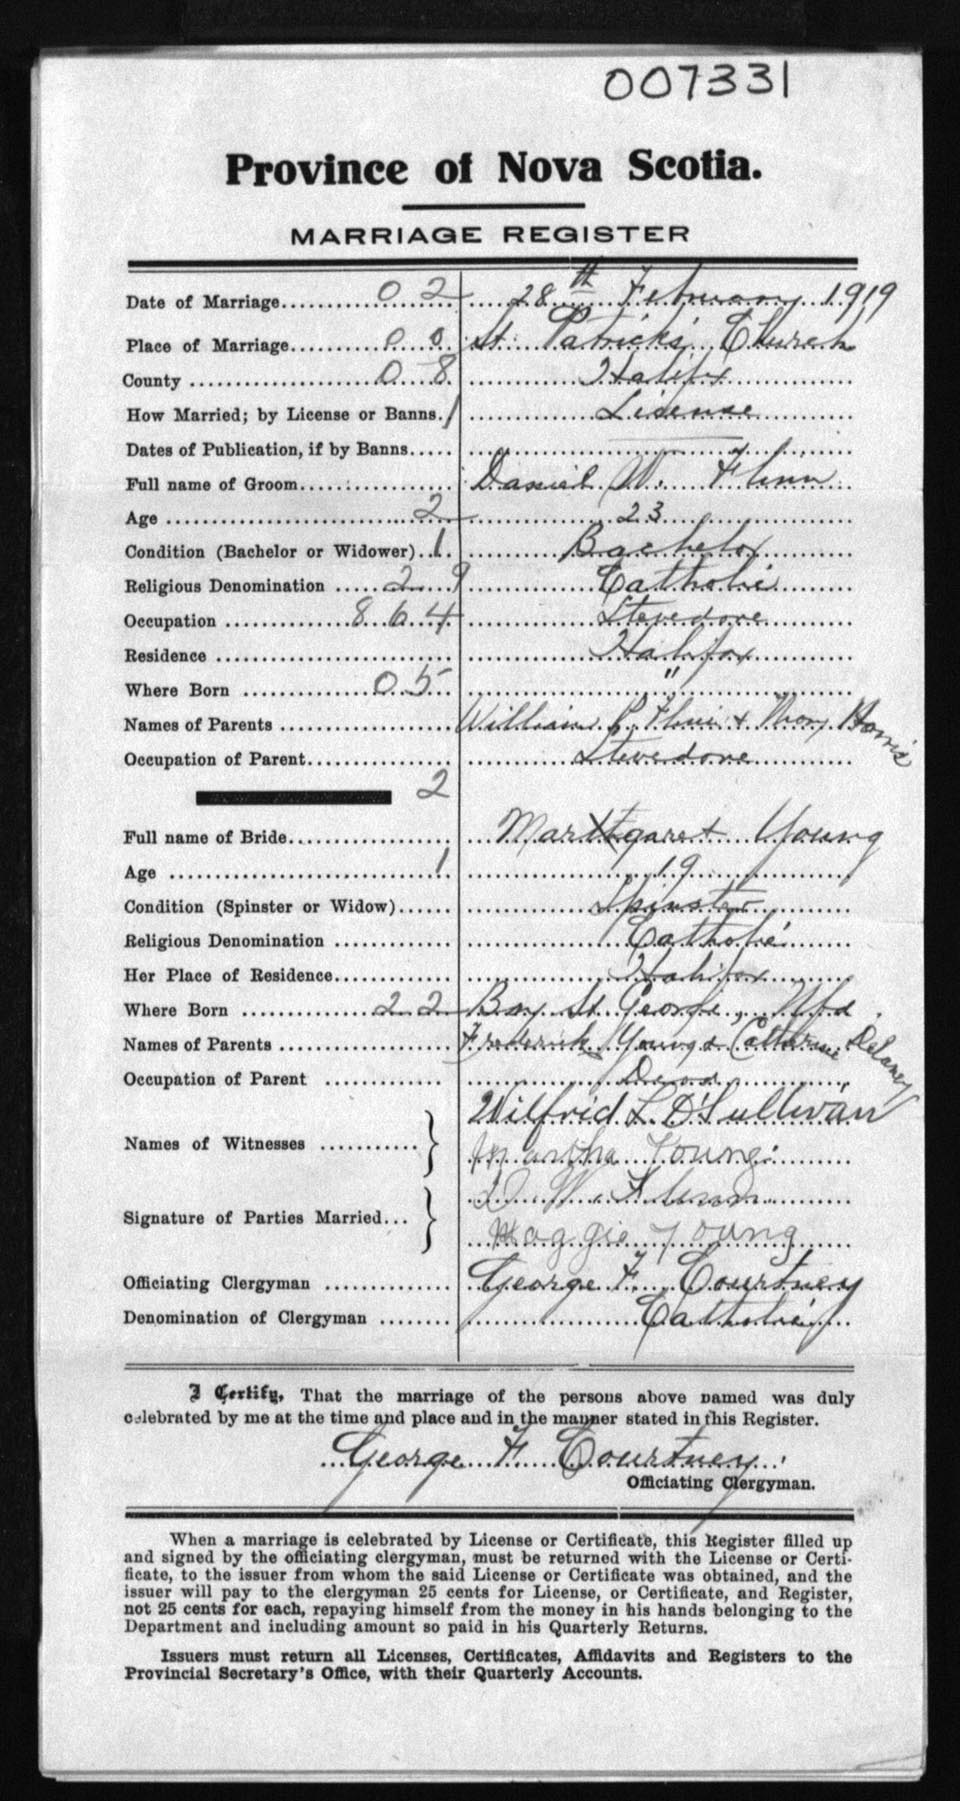 007331
Province of Nova Scotia.
MARRIAGE REGISTER
Date of Marriage 0 2 28th February 1919
Place of Marriage 0 0 St. Patrick's Church
County 0 8 Halifax
How Married; by License or Banns. 1 License
Dates of Publication, if by Banns
Full name of Groom Daniel W. Flinn
Age 2 23
Condition (Bachelor or Widower) 1 Bachelor
Religious Denomination 2 9 Catholic
Occupation 8 6 4 Stevedore
Residence Halifax
Where Born 0 5 "
Names of Parents William P. Flinn & Mary Harris
Occupation of Parent Stevedore
2
Full name of Bride Margaret Young
Age 1 19
Condition (Spinster or Widow) Spinster
Religious Denomination Catholic
Her Place of Residence Halifax
Where Born 2 2 Bay St. George, Nfd.
Names of Parents Frederick Young & Catherine Delaney
Occupation of Parent Dead
Names of Witnesses Wilfrid L. O'Sullivan
Martha Young
Signature of Parties Married D. W. Flinn
Maggie Young
Officiating Clergyman George F. Courtney
Denomination of Clergyman Catholic
I Certify, That the marriage of the persons above named was duly
celebrated by me at the time and place and in the manner stated in this Register.
George F. Courtney
Officiating Clergyman.
When a marriage is celebrated by License or Certificate, this Register filled up
and signed by the officiating clergyman, must be returned with the License or Certi-
ficate, to the issuer from whom the said License or Certificate was obtained, and the
issuer will pay to the clergyman 25 cents for License, or Certificate, and Register,
not 25 cents for each, repaying himself from the money in his hands belonging to the
Department and including amount so paid in his Quarterly Returns.
Issuers must return all Licenses, Certificates, Affidavits and Registers to the
Provincial Secretary's Office, with their Quarterly Accounts.